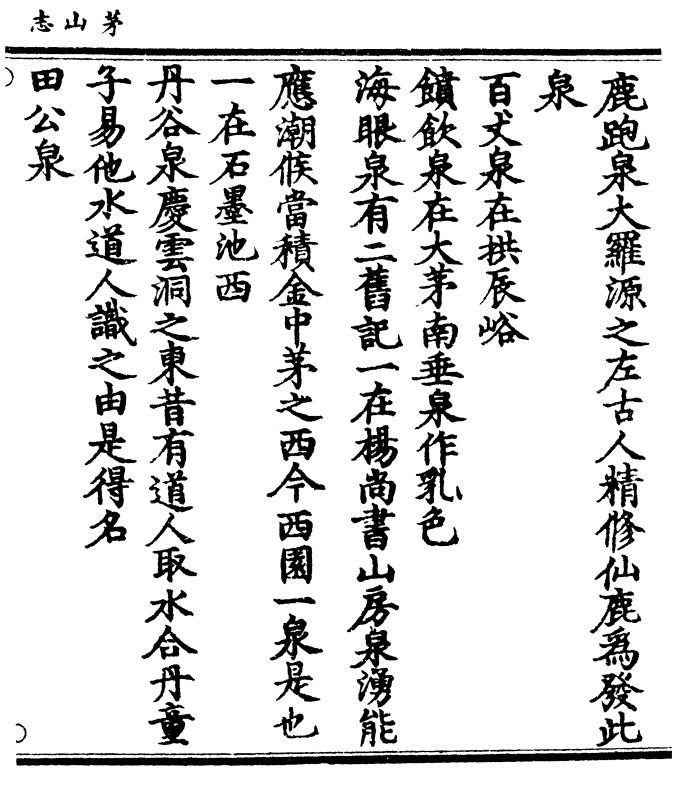 茅山志
鹿跑泉大羅源之左古人精修仙鹿爲發此
泉
百丈泉在拱辰峪
饙飲泉在大茅南垂泉作乳色
海眼泉有二舊記一在楊尚書山房泉湧能
應潮候當積金中茅之西今西園一泉是也
一在石墨池西
丹谷泉慶雲洞之東昔有道人取水合丹童
子易他水道人識之由是得名
田公泉